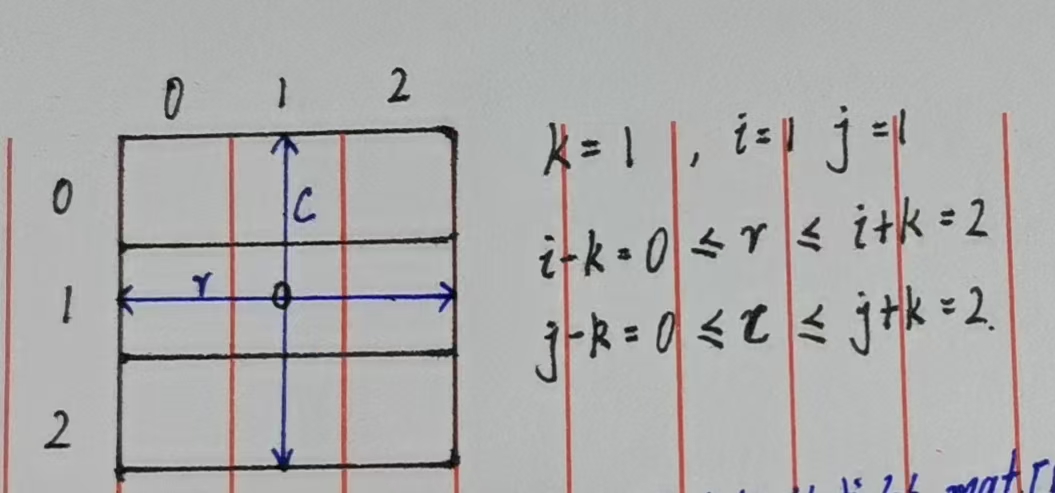 0 1 2
0
C
1
r
0
2
k = 1 , i = 1 j = 1
i - k = 0 ≤ r ≤ i + k = 2
j - k = 0 ≤ c ≤ j + k = 2.
mat